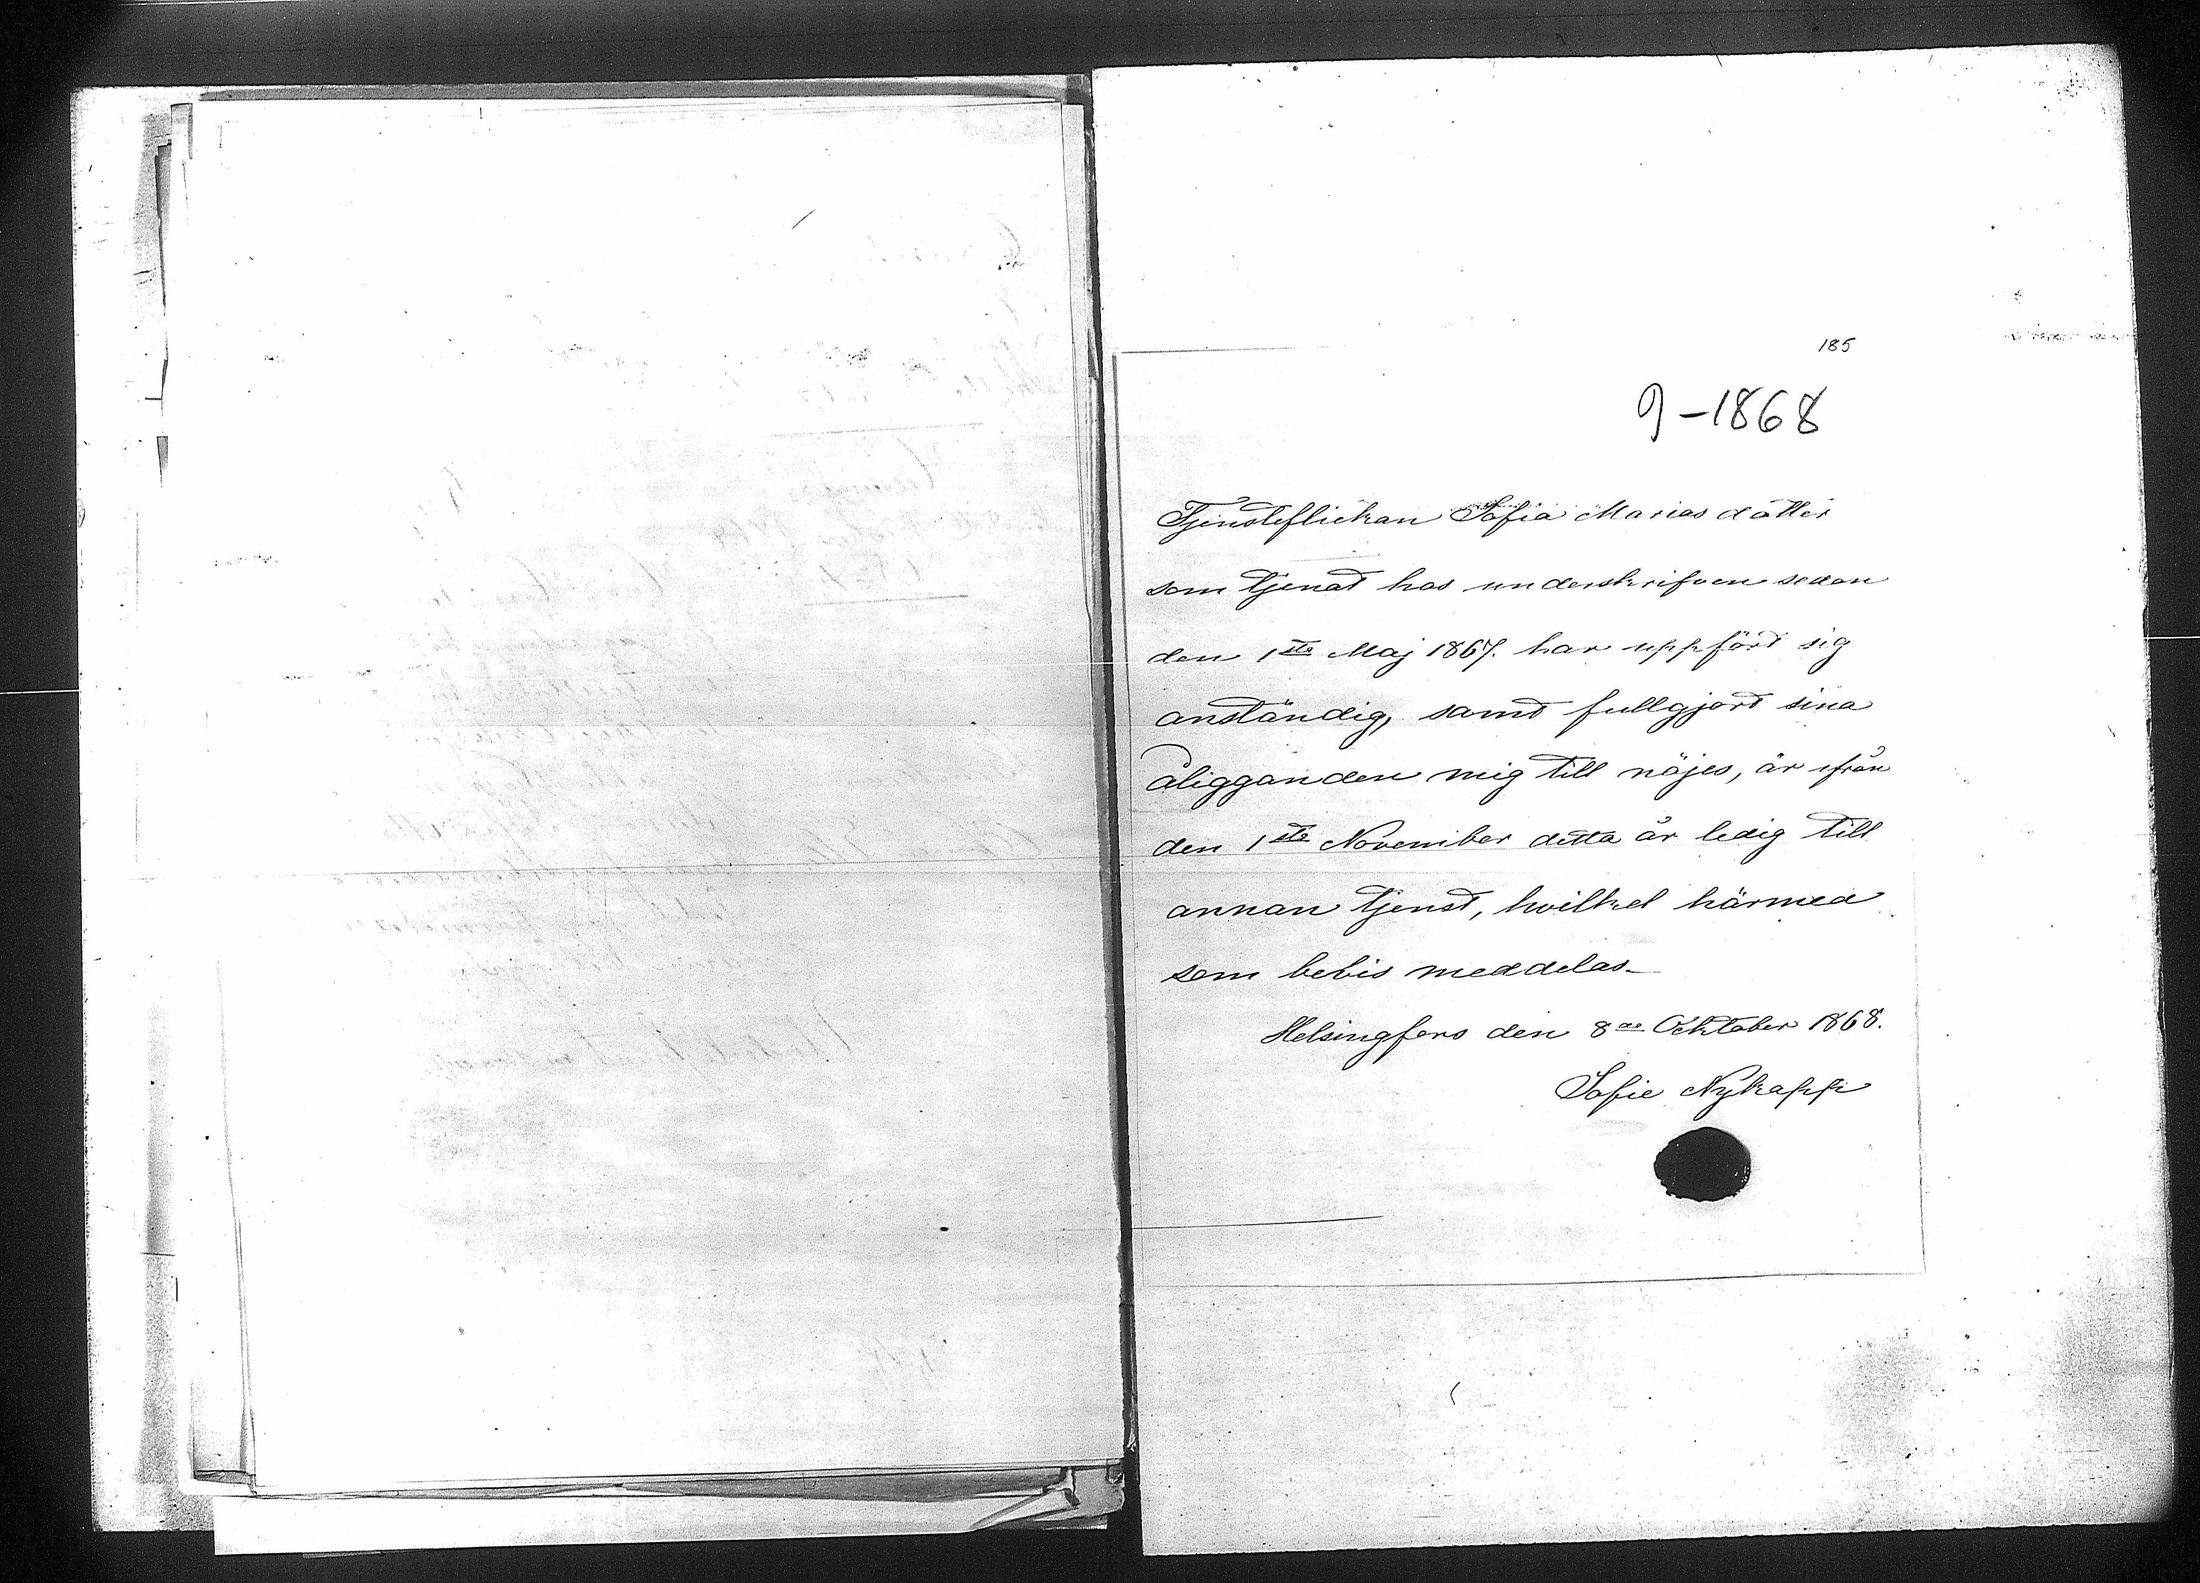 185
9-1868
Tjensteflickan Sofia Marias dotter
som tjenat hos underskrifven sedan
den 1ste Maj 1867. har uppfört sig
anständig, samt fullgjort sina
åligganden mig till nöjes, är ifrån
den 1ste November detta år ledig till
annan tjenst, hvilket härmed
som bebis meddelas_
Helsingfors den 8de Oktober 1868.
Sofie Nykopp